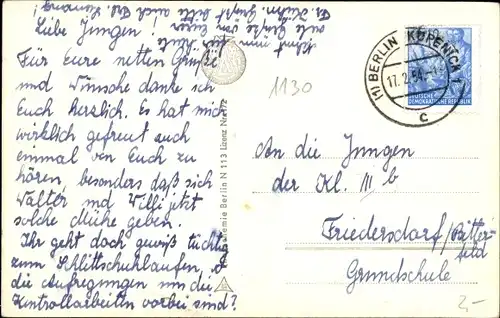 Liebe Jungen!
Für eure netten Grüße
und Wünsche danke ich
Euch herzlich. Es hat mich
wirklich gefreut auch
einmal von Euch zu
hören, besonders daß sich
Walter und Willi jetzt
solche Mühe geben.
Ihr geht doch gewiß tüchtig
zum Schlittschuhlaufen, o
die Aufregungen um die
Kontrollarbeiten vorbei sind?
viele Grüße von Eurer
Berlin N 113 Lizenz Nr.
1130
(1) BERLIN KÖPENICK 1
17.2.54
c
DEUTSCHE
DEMOKRATISCHE REPUBLIK
An die Jungen
der Kl. III b
Friedersdorf/Bitter-
feld
Grundschule
2,-